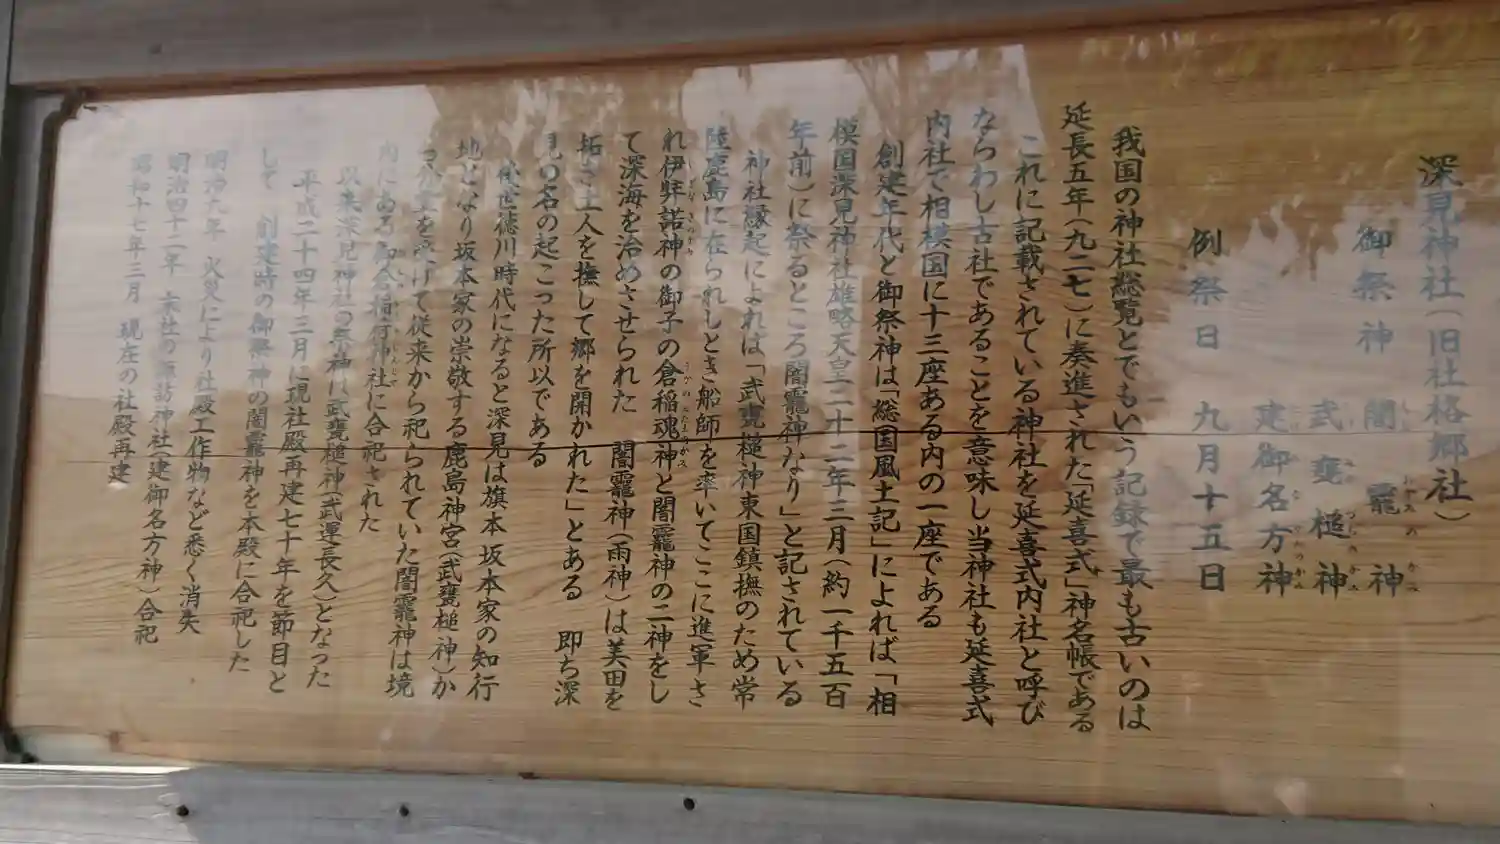 深見神社(旧社格郷社)
御祭神 闇龗神
武甕槌神
建御名方神
例祭日 九月十五日
我国の神社総覧とでもいう記録で最も古いのは
延長五年(九二七)に奏進された「延喜式」神名帳である
これに記載されている神社を延喜式内社と呼び
ならわし古社であることを意味し当神社も延喜式
内社で相模国に十三座ある内の一座である
創建年代と御祭神は「総国風土記」によれば「相
模国深見神社雄略天皇二十二年三月(約一千五百
年前)に祭るところ闇龗神なり」と記されている
神社縁起によれば「武甕槌神東国鎮撫のため常
陸鹿島に在られしとき船師を率いてここに進軍さ
れ伊弉諾神の御子の倉稲魂神と闇龗神の二神をし
て深海を治めさせられた 闇龗神(雨神)は美田を
拓き土人を撫して郷を開かれた」とある 即ち深
見の名の起こった所以である
後世徳川時代になると深見は旗本坂本家の知行
地となり坂本家の崇敬する鹿島神宮(武甕槌神)か
を受けて従来から祀られていた闇龗神は境
内にある御倉稲荷神社に合祀された
以来深見神社の祭神は武甕槌神(武運長久)となった
平成二十四年三月に現社殿再建七十年を節目と
して 創建時の御祭神の闇龗神を本殿に合祀した
明治九年 火災により社殿工作物など悉く消失
明治四十二年 末社の諏訪神社(建御名方神)合祀
昭和十七年三月 現在の社殿再建